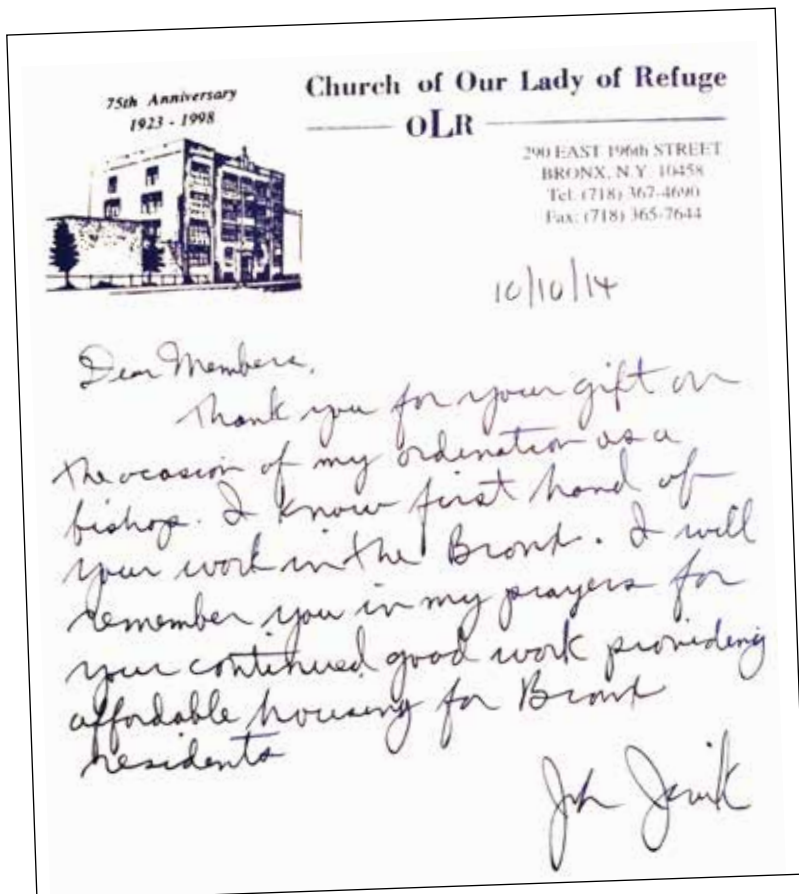 75th Anniversary
1923 - 1998
Church of Our Lady of Refuge
OLR
290 EAST 196th STREET
BRONX, N.Y. 10458
Tel. (718) 367-4690
Fax: (718) 365-7644
10/10/14
Dear Members,
Thank you for your gift on
the occasion of my ordination as a
bishop. I know first hand of
your work in the Bronx. I will
remember you in my prayers for
your continued good work providing
affordable housing for Bronx
residents
John Jenik